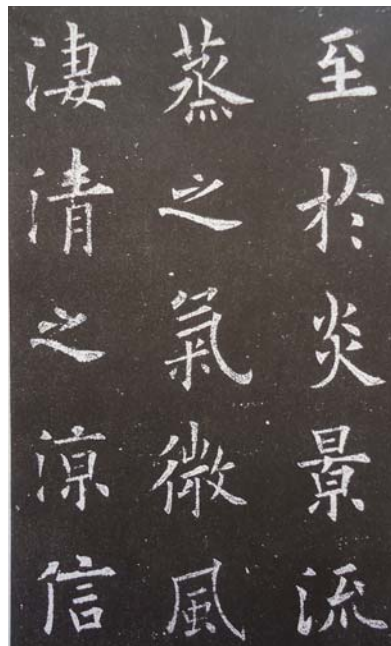 至於炎景流
蒸之氣微風
淒清之涼信